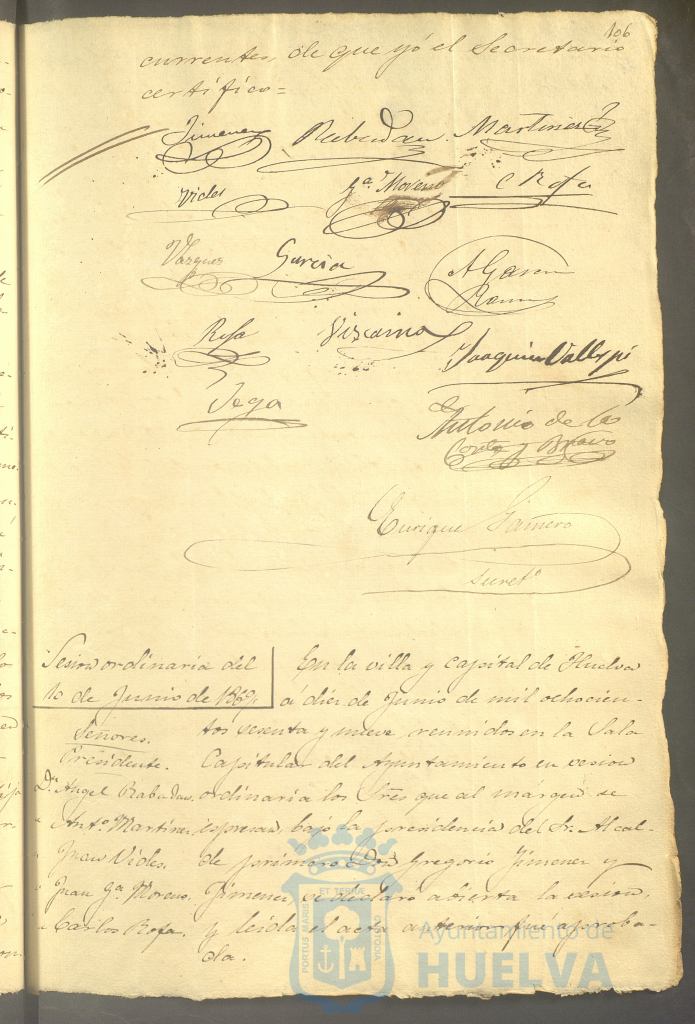 106
currentes, de que yó el Secretario
certifico=
Jimenez Rabadan Martinez
Vides Ga. Moreno C Rofa
Vazquez Garcia A Garcia
Ramos
Rofa Vizcaino Joaquin Vallespi
Vega
Antonio de la
Corte y Bravo
Enrique Gamero
Secreto
Sesion ordinaria del
10 de Junio de 1869.
Señores.
Presidente.
Dn. Angel Rabadan.
" Anto. Martinez
" Juan Vides.
" Juan Ga. Moreno.
" Carlos Rofa.
En la villa y capital de Huelva
á diez de Junio de mil ochocien-
tos sesenta y nueve, reunidos en la Sala
Capitular del Ayuntamiento en sesion
ordinaria los Sres que al márgen se
espresan, bajo la presidencia del Sr. Alcal-
de primero Don Gregorio Jimenez y
Jimenez, se declaró abierta la sesion,
y leida el acta anterior fué aproba-
da.
PORTUS MARIS ET TERRAE CUSTODIA
Ayuntamiento de
HUELVA